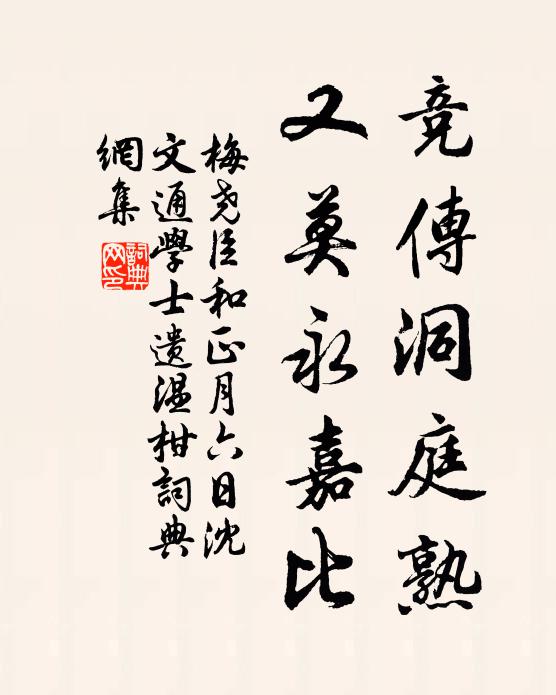 竞傳洞庭熟
又莫永嘉比
梅尧臣和正月六日沈
文通學士遗温柑詞典
網集
詞典网印